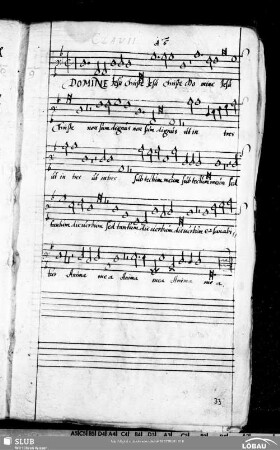 CLXVII
à 6
DOMINE Jesu Christe Jesu Christe Domine Jesu
Christe non sum dignus non sum dignus ut in tres
ut in tres ut intres sub tectum meum sub tectum meum sed
tantum dic verbum sed tantum dic verbum dic verbum et sanabi,
tur Anima mea Anima mea Anima mea
33
SLUB
LÖBAU